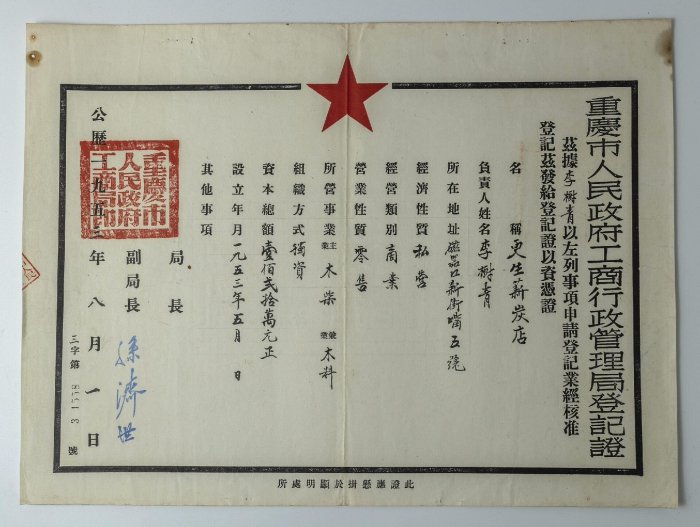 重慶市人民政府工商行政管理局登記證
茲據李樹青以左列事項申請登記業經核准
登記茲發給登記證以資憑證
名稱 更生薪炭店
負責人姓名 李樹青
所在地址 磁器口新街嘴五號
經濟性質 私營
經營類別 商業
營業性質 零售
所營事業 主業 木柴 兼業 木料
組織方式 獨資
資本總額 壹佰貳拾萬元正
設立年月 一九五三年五月 日
其他事項
局長
副局長 孫濟世
公歷一九五三年八月一日
重慶市人民政府工商局
三字第 號
此證應懸掛於顯明處所